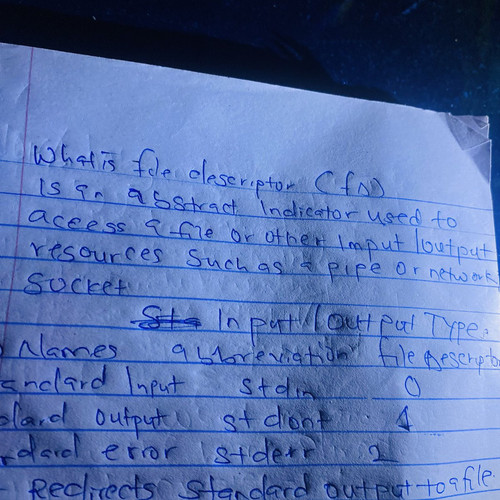 What is file descriptor (fd)
Is an abstract Indicator used to
access a file or other Imput/output
resources such as a pipe or network
socket
Input/output Type.
Names abbreviation file Descripto
andard Input stdin 0
dard output stdout 1
rdard error stderr 2
Redirects standard output to a file